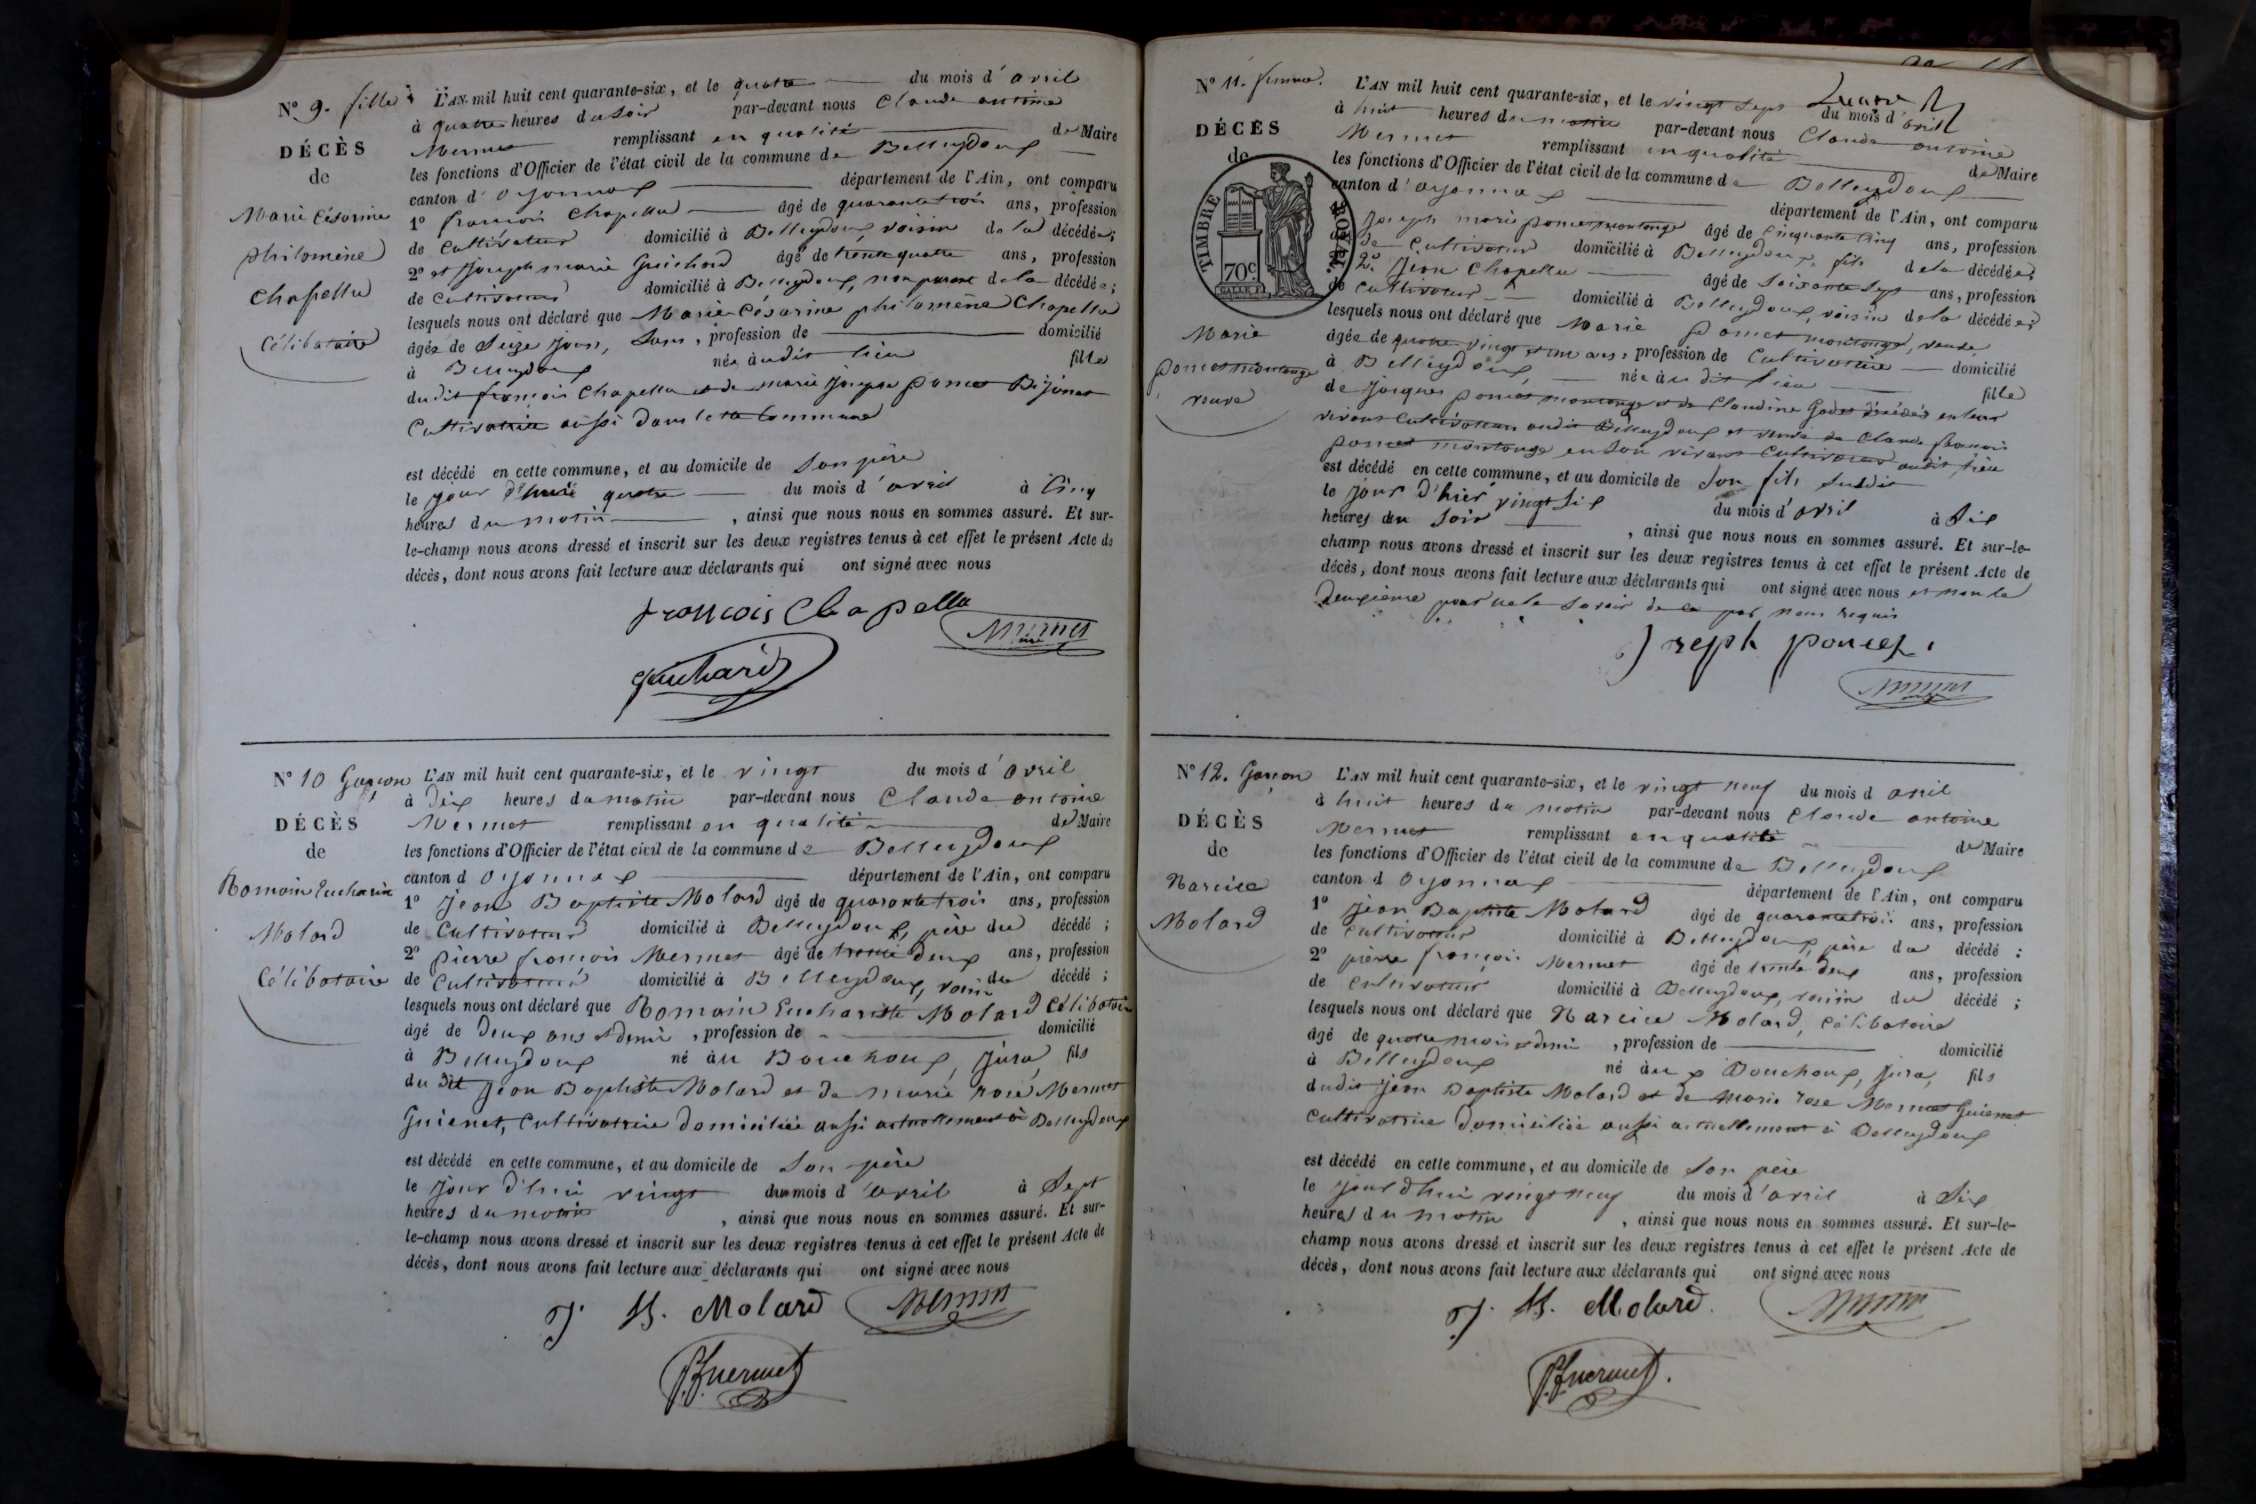 N° 9. fille
DÉCÈS
de
Marie Césarine
philomène
Chapellu
Célibataire
L'AN mil huit cent quarante-six, et le quatre du mois d'avril
à quatre heures du soir par-devant nous Claude antoine
Mermet remplissant en qualité de Maire
les fonctions d'Officier de l'état civil de la commune de Belleydoux
canton d'oyonnax département de l'Ain, ont comparu
1° françois Chapellu âgé de quarante trois ans, profession
de Cultivateur domicilié à Belleydoux, voisin de la décédée;
2° et Joseph marie Guichard âgé de trente quatre ans, profession
de Cultivateur domicilié à Belleydoux, non parent de la décédée;
lesquels nous ont déclaré que Marie Césarine philomène Chapellu
âgée de Seize jours, sans, profession de domicilié
à Belleydoux née audit lieu fille
dudit françois Chapellu et de marie Josephe poncet Bijonet
Cultivatrice aussi dans cette Commune
est décédé en cette commune, et au domicile de son père
le jour d'hui quatre du mois d'avril à Cinq
heures du matin, ainsi que nous nous en sommes assuré. Et sur-
le-champ nous avons dressé et inscrit sur les deux registres tenus à cet effet le présent Acte de
décès, dont nous avons fait lecture aux déclarants qui ont signé avec nous
françois Chapellu
Mermet
Guichard
N° 10 Garçon
DÉCÈS
de
Romain Eucharite
Molard
Célibataire
L'AN mil huit cent quarante-six, et le vingt du mois d'avril
à dix heures du matin par-devant nous Claude antoine
Mermet remplissant en qualité de Maire
les fonctions d'Officier de l'état civil de la commune de Belleydoux
canton d oyonnax département de l'Ain, ont comparu
1° Jean Baptiste Molard âgé de quarante trois ans, profession
de Cultivateur domicilié à Belleydoux, père du décédé;
2° pierre françois Mermet âgé de trente deux ans, profession
de Cultivateur domicilié à Belleydoux, voisin du décédé;
lesquels nous ont déclaré que Romain Eucharite Molard Célibataire
âgé de deux ans et demi, profession de domicilié
à Belleydoux né au Bouchoux, Jura, fils
du dit Jean Baptiste Molard et de marie rose Mermet
Guienet, Cultivatrice domiciliée aussi actuellement à Belleydoux
est décédé en cette commune, et au domicile de son père
le jour d'hui vingt du mois d'avril à Sept
heures du matin, ainsi que nous nous en sommes assuré. Et sur-
le-champ nous avons dressé et inscrit sur les deux registres tenus à cet effet le présent Acte de
décès, dont nous avons fait lecture aux déclarants qui ont signé avec nous
J. B. Molard Mermet
P. f. mermet
11
N° 11. femme.
DÉCÈS
de
TIMBRE ROYAL.
70 c
Marie
poncet montange
veuve
L'AN mil huit cent quarante-six, et le vingt sept du mois d'avril
à huit heures du matin par-devant nous Claude antoine
Mermet remplissant en qualité de Maire
les fonctions d'Officier de l'état civil de la commune de Belleydoux
canton d'oyonnax département de l'Ain, ont comparu
Joseph marie poncet montange âgé de cinquante cinq ans, profession
de Cultivateur domicilié à Belleydoux, fils de la décédée;
2° Jean Chapellu âgé de soixante sept ans, profession
de Cultivateur domicilié à Belleydoux, voisin de la décédée;
lesquels nous ont déclaré que Marie poncet montange, veuve
âgée de quatre vingt et un ans, profession de Cultivatrice domicilié
à Belleydoux, née au dit lieu fille
de Jacques poncet montange et de Claudine Godet décédés en leur
vivant Cultivateurs audit Belleydoux et veuve de Claude françois
poncet montange en son vivant Cultivateur audit lieu
est décédé en cette commune, et au domicile de son fils susdit
le jour d'hier vingt six du mois d'avril à six
heures du soir, ainsi que nous nous en sommes assuré. Et sur-le-
champ nous avons dressé et inscrit sur les deux registres tenus à cet effet le présent Acte de
décès, dont nous avons fait lecture aux déclarants qui ont signé avec nous et non le
deuxième pour ne le savoir de ce par nous requis
Joseph poncet.
Mermet
N° 12. Garçon
DÉCÈS
de
Narcice
Molard
L'AN mil huit cent quarante-six, et le vingt neuf du mois d avril
à huit heures du matin par-devant nous Claude antoine
Mermet remplissant en qualité de Maire
les fonctions d'Officier de l'état civil de la commune de Belleydoux
canton d oyonnax département de l'Ain, ont comparu
1° Jean Baptiste Molard âgé de quarante trois ans, profession
de Cultivateur domicilié à Belleydoux, père du décédé:
2° pierre françois Mermet âgé de trente deux ans, profession
de Cultivateur domicilié à Belleydoux, voisin du décédé;
lesquels nous ont déclaré que Narcice Molard, Célibataire
âgé de quatre mois et demi, profession de domicilié
à Belleydoux né au Bouchoux, Jura, fils
dudit Jean Baptiste Molard et de Marie rose Mermet Guienet
Cultivatrice domiciliée aussi actuellement à Belleydoux
est décédé en cette commune, et au domicile de son père
le jour d'hui vingt neuf du mois d'avril à six
heures du matin, ainsi que nous nous en sommes assuré. Et sur-le-
champ nous avons dressé et inscrit sur les deux registres tenus à cet effet le présent Acte de
décès, dont nous avons fait lecture aux déclarants qui ont signé avec nous
J. B. Molard. Mermet
P. f. mermet.